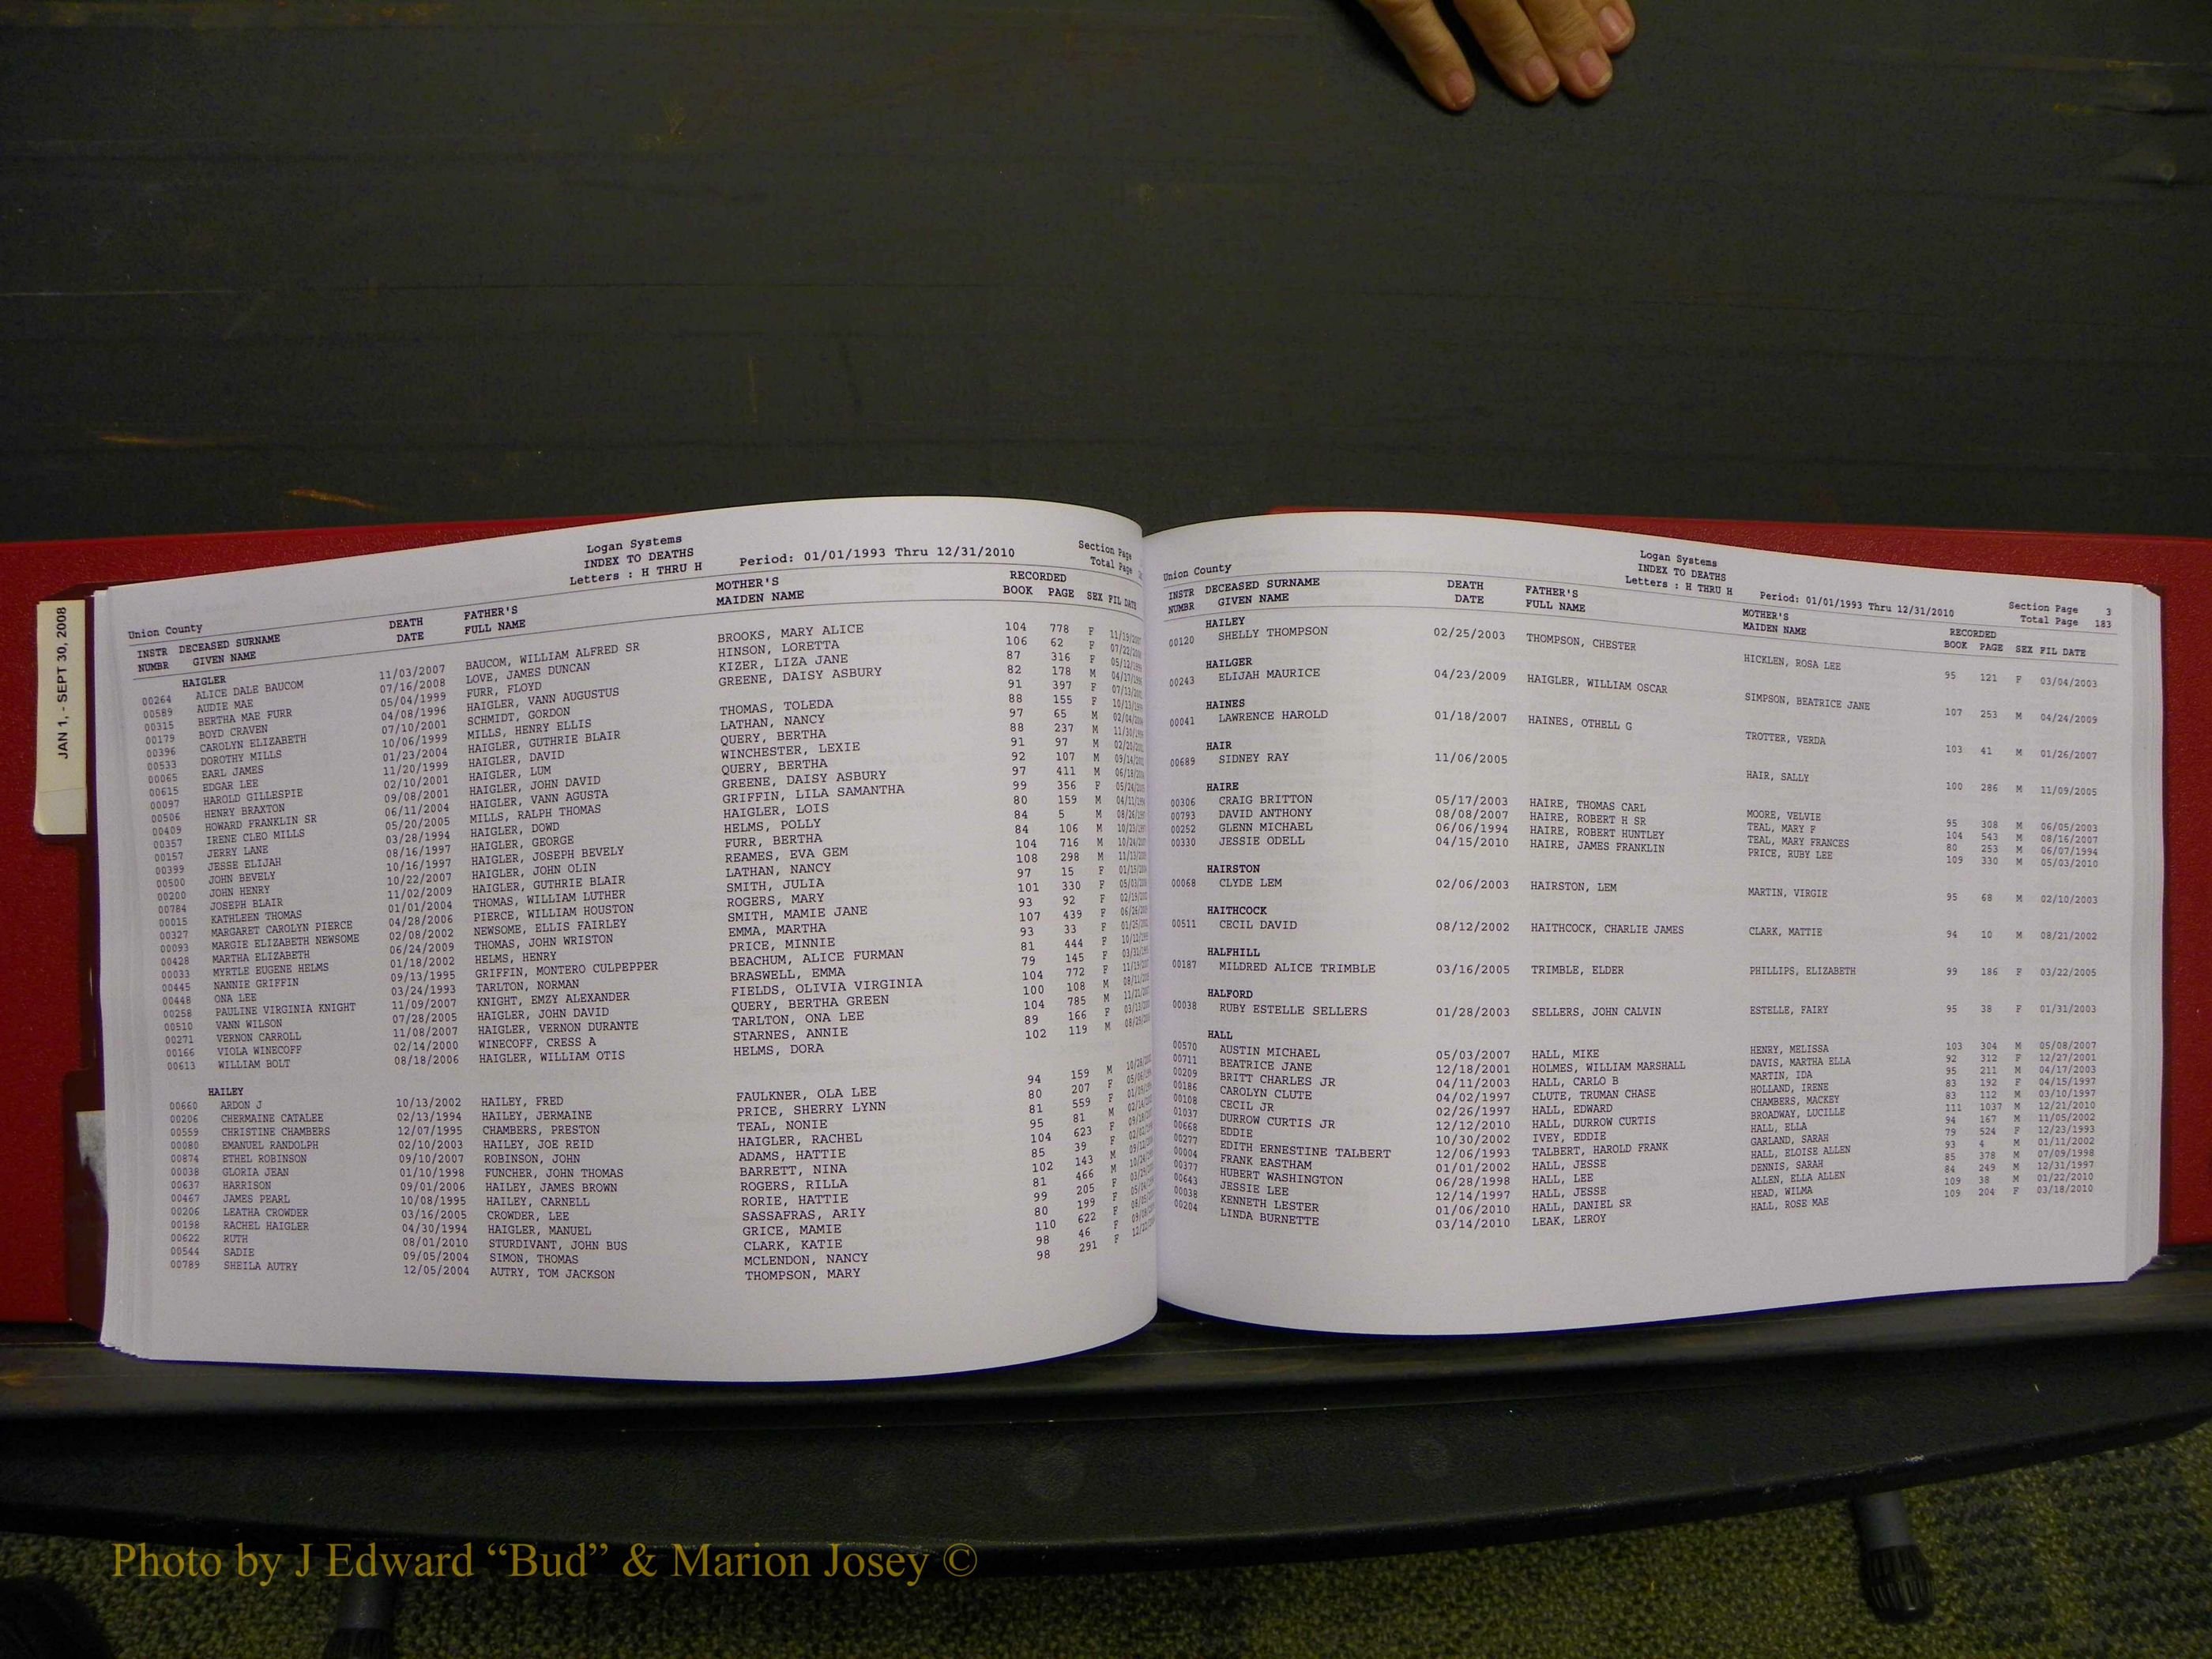 JAN 1, - SEPT 30, 2008
Logan Systems
INDEX TO DEATHS
Letters : H THRU H
Period: 01/01/1993 Thru 12/31/2010
Section Page
Total Page
Union County
INSTR DECEASED SURNAME DEATH FATHER'S MOTHER'S RECORDED
NUMBR GIVEN NAME DATE FULL NAME MAIDEN NAME BOOK PAGE SEX FIL DATE
HAIGLER
00264 ALICE DALE BAUCOM 11/03/2007 BAUCOM, WILLIAM ALFRED SR BROOKS, MARY ALICE 104 778 F
00589 AUDIE MAE 07/16/2008 LOVE, JAMES DUNCAN HINSON, LORETTA 106 62 F
00315 BERTHA MAE FURR 05/04/1999 FURR, FLOYD KIZER, LIZA JANE 87 316 F
00179 BOYD CRAVEN 04/08/1996 HAIGLER, VANN AUGUSTUS GREENE, DAISY ASBURY 82 178 M
00396 CAROLYN ELIZABETH 07/10/2001 SCHMIDT, GORDON 91 397 F
00533 DOROTHY MILLS 10/06/1999 MILLS, HENRY ELLIS THOMAS, TOLEDA 88 155 F
00065 EARL JAMES 01/23/2004 HAIGLER, GUTHRIE BLAIR LATHAN, NANCY 97 65 M
00615 EDGAR LEE 11/20/1999 HAIGLER, DAVID QUERY, BERTHA 88 237 M
00097 HAROLD GILLESPIE 02/10/2001 HAIGLER, LUM WINCHESTER, LEXIE 91 97 M
00506 HENRY BRAXTON 09/08/2001 HAIGLER, JOHN DAVID QUERY, BERTHA 92 107 M
00409 HOWARD FRANKLIN SR 06/11/2004 HAIGLER, VANN AGUSTA GREENE, DAISY ASBURY 97 411 M
00357 IRENE CLEO MILLS 05/20/2005 MILLS, RALPH THOMAS GRIFFIN, LILA SAMANTHA 99 356 F
00157 JERRY LANE 03/28/1994 HAIGLER, DOWD HAIGLER, LOIS 80 159 M
00399 JESSE ELIJAH 08/16/1997 HAIGLER, GEORGE HELMS, POLLY 84 5 M
00500 JOHN BEVELY 10/16/1997 HAIGLER, JOSEPH BEVELY FURR, BERTHA 84 106 M
00200 JOHN HENRY 10/22/2007 HAIGLER, JOHN OLIN REAMES, EVA GEM 104 716 M
00784 JOSEPH BLAIR 11/02/2009 HAIGLER, GUTHRIE BLAIR LATHAN, NANCY 108 298 M
00015 KATHLEEN THOMAS 01/01/2004 THOMAS, WILLIAM LUTHER SMITH, JULIA 97 15 F
00327 MARGARET CAROLYN PIERCE 04/28/2006 PIERCE, WILLIAM HOUSTON ROGERS, MARY 101 330 F
00093 MARGIE ELIZABETH NEWSOME 02/08/2002 NEWSOME, ELLIS FAIRLEY SMITH, MAMIE JANE 93 92 F
00428 MARTHA ELIZABETH 06/24/2009 THOMAS, JOHN WRISTON EMMA, MARTHA 107 439 F
00033 MYRTLE EUGENE HELMS 01/18/2002 HELMS, HENRY PRICE, MINNIE 93 33 F
00445 NANNIE GRIFFIN 09/13/1995 GRIFFIN, MONTERO CULPEPPER BEACHUM, ALICE FURMAN 81 444 F
00448 ONA LEE 03/24/1993 TARLTON, NORMAN BRASWELL, EMMA 79 145 F
00258 PAULINE VIRGINIA KNIGHT 11/09/2007 KNIGHT, EMZY ALEXANDER FIELDS, OLIVIA VIRGINIA 104 772 F
00510 VANN WILSON 07/28/2005 HAIGLER, JOHN DAVID QUERY, BERTHA GREEN 100 108 M
00271 VERNON CARROLL 11/08/2007 HAIGLER, VERNON DURANTE TARLTON, ONA LEE 104 785 M
00166 VIOLA WINECOFF 02/14/2000 WINECOFF, CRESS A STARNES, ANNIE 89 166 F
00613 WILLIAM BOLT 08/18/2006 HAIGLER, WILLIAM OTIS HELMS, DORA 102 119 M
HAILEY
00660 ARDON J 10/13/2002 HAILEY, FRED FAULKNER, OLA LEE 94 159 M
00206 CHERMAINE CATALEE 02/13/1994 HAILEY, JERMAINE PRICE, SHERRY LYNN 80 207 F
00559 CHRISTINE CHAMBERS 12/07/1995 CHAMBERS, PRESTON TEAL, NONIE 81 559 F
00080 EMANUEL RANDOLPH 02/10/2003 HAILEY, JOE REID HAIGLER, RACHEL 95 81 M
00874 ETHEL ROBINSON 09/10/2007 ROBINSON, JOHN ADAMS, HATTIE 104 623 F
00038 GLORIA JEAN 01/10/1998 FUNCHER, JOHN THOMAS BARRETT, NINA 85 39 F
00637 HARRISON 09/01/2006 HAILEY, JAMES BROWN ROGERS, RILLA 102 143 M
00467 JAMES PEARL 10/08/1995 HAILEY, CARNELL RORIE, HATTIE 81 466 M
00206 LEATHA CROWDER 03/16/2005 CROWDER, LEE SASSAFRAS, ARIY 99 205 F
00198 RACHEL HAIGLER 04/30/1994 HAIGLER, MANUEL GRICE, MAMIE 80 199 F
00622 RUTH 08/01/2010 STURDIVANT, JOHN BUS CLARK, KATIE 110 622 F
00544 SADIE 09/05/2004 SIMON, THOMAS MCLENDON, NANCY 98 46 F
00789 SHEILA AUTRY 12/05/2004 AUTRY, TOM JACKSON THOMPSON, MARY 98 291 F
Logan Systems
INDEX TO DEATHS
Letters : H THRU H
Period: 01/01/1993 Thru 12/31/2010
Section Page 3
Total Page 183
Union County
INSTR DECEASED SURNAME DEATH FATHER'S MOTHER'S RECORDED
NUMBR GIVEN NAME DATE FULL NAME MAIDEN NAME BOOK PAGE SEX FIL DATE
HAILEY
00120 SHELLY THOMPSON 02/25/2003 THOMPSON, CHESTER HICKLEN, ROSA LEE 95 121 F 03/04/2003
HAILGER
00243 ELIJAH MAURICE 04/23/2009 HAIGLER, WILLIAM OSCAR SIMPSON, BEATRICE JANE 107 253 M 04/24/2009
HAINES
00041 LAWRENCE HAROLD 01/18/2007 HAINES, OTHELL G TROTTER, VERDA 103 41 M 01/26/2007
HAIR
00689 SIDNEY RAY 11/06/2005 HAIR, SALLY 100 286 M 11/09/2005
HAIRE
00306 CRAIG BRITTON 05/17/2003 HAIRE, THOMAS CARL MOORE, VELVIE 95 308 M 06/05/2003
00793 DAVID ANTHONY 08/08/2007 HAIRE, ROBERT H SR TEAL, MARY F 104 543 M 08/16/2007
00252 GLENN MICHAEL 06/06/1994 HAIRE, ROBERT HUNTLEY TEAL, MARY FRANCES 80 253 M 06/07/1994
00330 JESSIE ODELL 04/15/2010 HAIRE, JAMES FRANKLIN PRICE, RUBY LEE 109 330 M 05/03/2010
HAIRSTON
00068 CLYDE LEM 02/06/2003 HAIRSTON, LEM MARTIN, VIRGIE 95 68 M 02/10/2003
HAITHCOCK
00511 CECIL DAVID 08/12/2002 HAITHCOCK, CHARLIE JAMES CLARK, MATTIE 94 10 M 08/21/2002
HALFHILL
00187 MILDRED ALICE TRIMBLE 03/16/2005 TRIMBLE, ELDER PHILLIPS, ELIZABETH 99 186 F 03/22/2005
HALFORD
00038 RUBY ESTELLE SELLERS 01/28/2003 SELLERS, JOHN CALVIN ESTELLE, FAIRY 95 38 F 01/31/2003
HALL
00570 AUSTIN MICHAEL 05/03/2007 HALL, MIKE HENRY, MELISSA 103 304 M 05/08/2007
00711 BEATRICE JANE 12/18/2001 HOLMES, WILLIAM MARSHALL DAVIS, MARTHA ELLA 92 312 F 12/27/2001
00209 BRITT CHARLES JR 04/11/2003 HALL, CARLO B MARTIN, IDA 95 211 M 04/17/2003
00186 CAROLYN CLUTE 04/02/1997 CLUTE, TRUMAN CHASE HOLLAND, IRENE 83 192 F 04/15/1997
00108 CECIL JR 02/26/1997 HALL, EDWARD CHAMBERS, MACKEY 83 112 M 03/10/1997
01037 DURROW CURTIS JR 12/12/2010 HALL, DURROW CURTIS BROADWAY, LUCILLE 111 1037 M 12/21/2010
00668 EDDIE 10/30/2002 IVEY, EDDIE HALL, ELLA 94 167 M 11/05/2002
00277 EDITH ERNESTINE TALBERT 12/06/1993 TALBERT, HAROLD FRANK GARLAND, SARAH 79 524 F 12/23/1993
00004 FRANK EASTHAM 01/01/2002 HALL, JESSE HALL, ELOISE ALLEN 93 4 M 01/11/2002
00377 HUBERT WASHINGTON 06/28/1998 HALL, LEE DENNIS, SARAH 85 378 M 07/09/1998
00643 JESSIE LEE 12/14/1997 HALL, JESSE ALLEN, ELLA ALLEN 84 249 M 12/31/1997
00038 KENNETH LESTER 01/06/2010 HALL, DANIEL SR HEAD, WILMA 109 38 M 01/22/2010
00204 LINDA BURNETTE 03/14/2010 LEAK, LEROY HALL, ROSE MAE 109 204 F 03/18/2010
Photo by J Edward “Bud” & Marion Josey ©